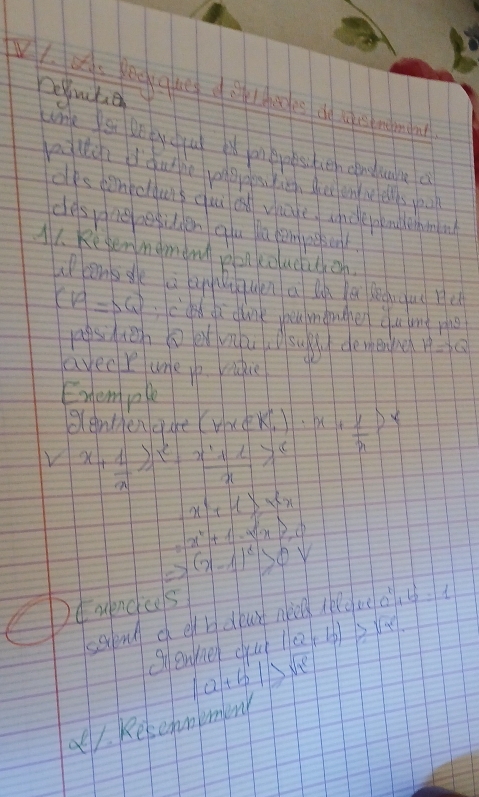 IV/. Les logiques d méthodes de raisonnement.
Définition
une loi logique et proposition construite a
partir d'autre proposition lieu entre elles par
des connecteurs qui et vraie, independemment
des proposition qui la composent.
1/. Résennement par
il consiste à appliquer a la loi logique P et
(P => Q), c'est à dire peu montrer qu'une pro
position Q et vrai, il suffit de montrer P => Q
avec P une p. vraie
Exemple
Montrer que (∀x∈ℝ+) : x + 1/x ≥ 2
x + 1/x ≥ 2 x² + 1/x ≥ 2
x² + 1 ≥ 2x
x² + 1 - 2x ≥ 0
=> (x - 1)² ≥ 0 V
Exercices
soient a et b deux réels tel que
Montrer que |a + b| ≥ √2
|a + b| ≥ √2
2/. Résennement